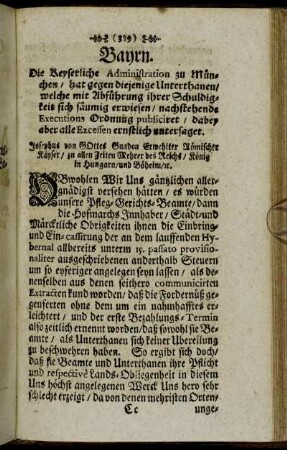 (319)
Bayrn.
Die Keyserliche Administration zu Mün-
chen / hat gegen diejenige Unterthanen /
welche mit Abführung ihrer Schuldig-
keit sich säumig erwiesen / nachstehende
Executions Ordnung publiciret / dabey
aber alle Excessen ernstlich untersaget.
Josephus von GOttes Gnaden Erwehlter Römischer
Käyser / zu allen Zeiten Mehrer des Reichs / König
in Hungarn / und Böheim / ꝛc.
OBwohlen Wir Uns gäntzlichen aller-
gnädigst versehen hätten / es würden
unsere Pfleg-Gerichts-Beamte / dann
die Hofmarchs Innhaber / Städt- und
Märckliche Obrigkeiten ihnen die Einbring-
und Ein-cassirung der an dem lauffenden Hy-
bernal allbereits unterm passato provisio-
naliter ausgeschriebenen anderthalb Steuern
um so eyferiger angelegen seyn lassen / als de-
nenselben aus denen seithero communicirten
Extracten kund worden / daß die Fordernüß ge-
gen ferten ohne dem um ein nahmhafftes er-
leichtert / und der erste Bezahlungs-Termin
also zeitlich ernennt worden / daß sowohl sie Be-
amte / als Unterthanen sich keiner Ubereilung
zu beschwehren haben. So ergibt sich doch /
daß sie Beamte und Unterthanen ihre Pflicht
und respective Lands-Obligenheit in diesem
Uns höchst angelegenen Werck Uns hero sehr
schlecht erzeigt / da von denen mehristen Orten
Cc unge-